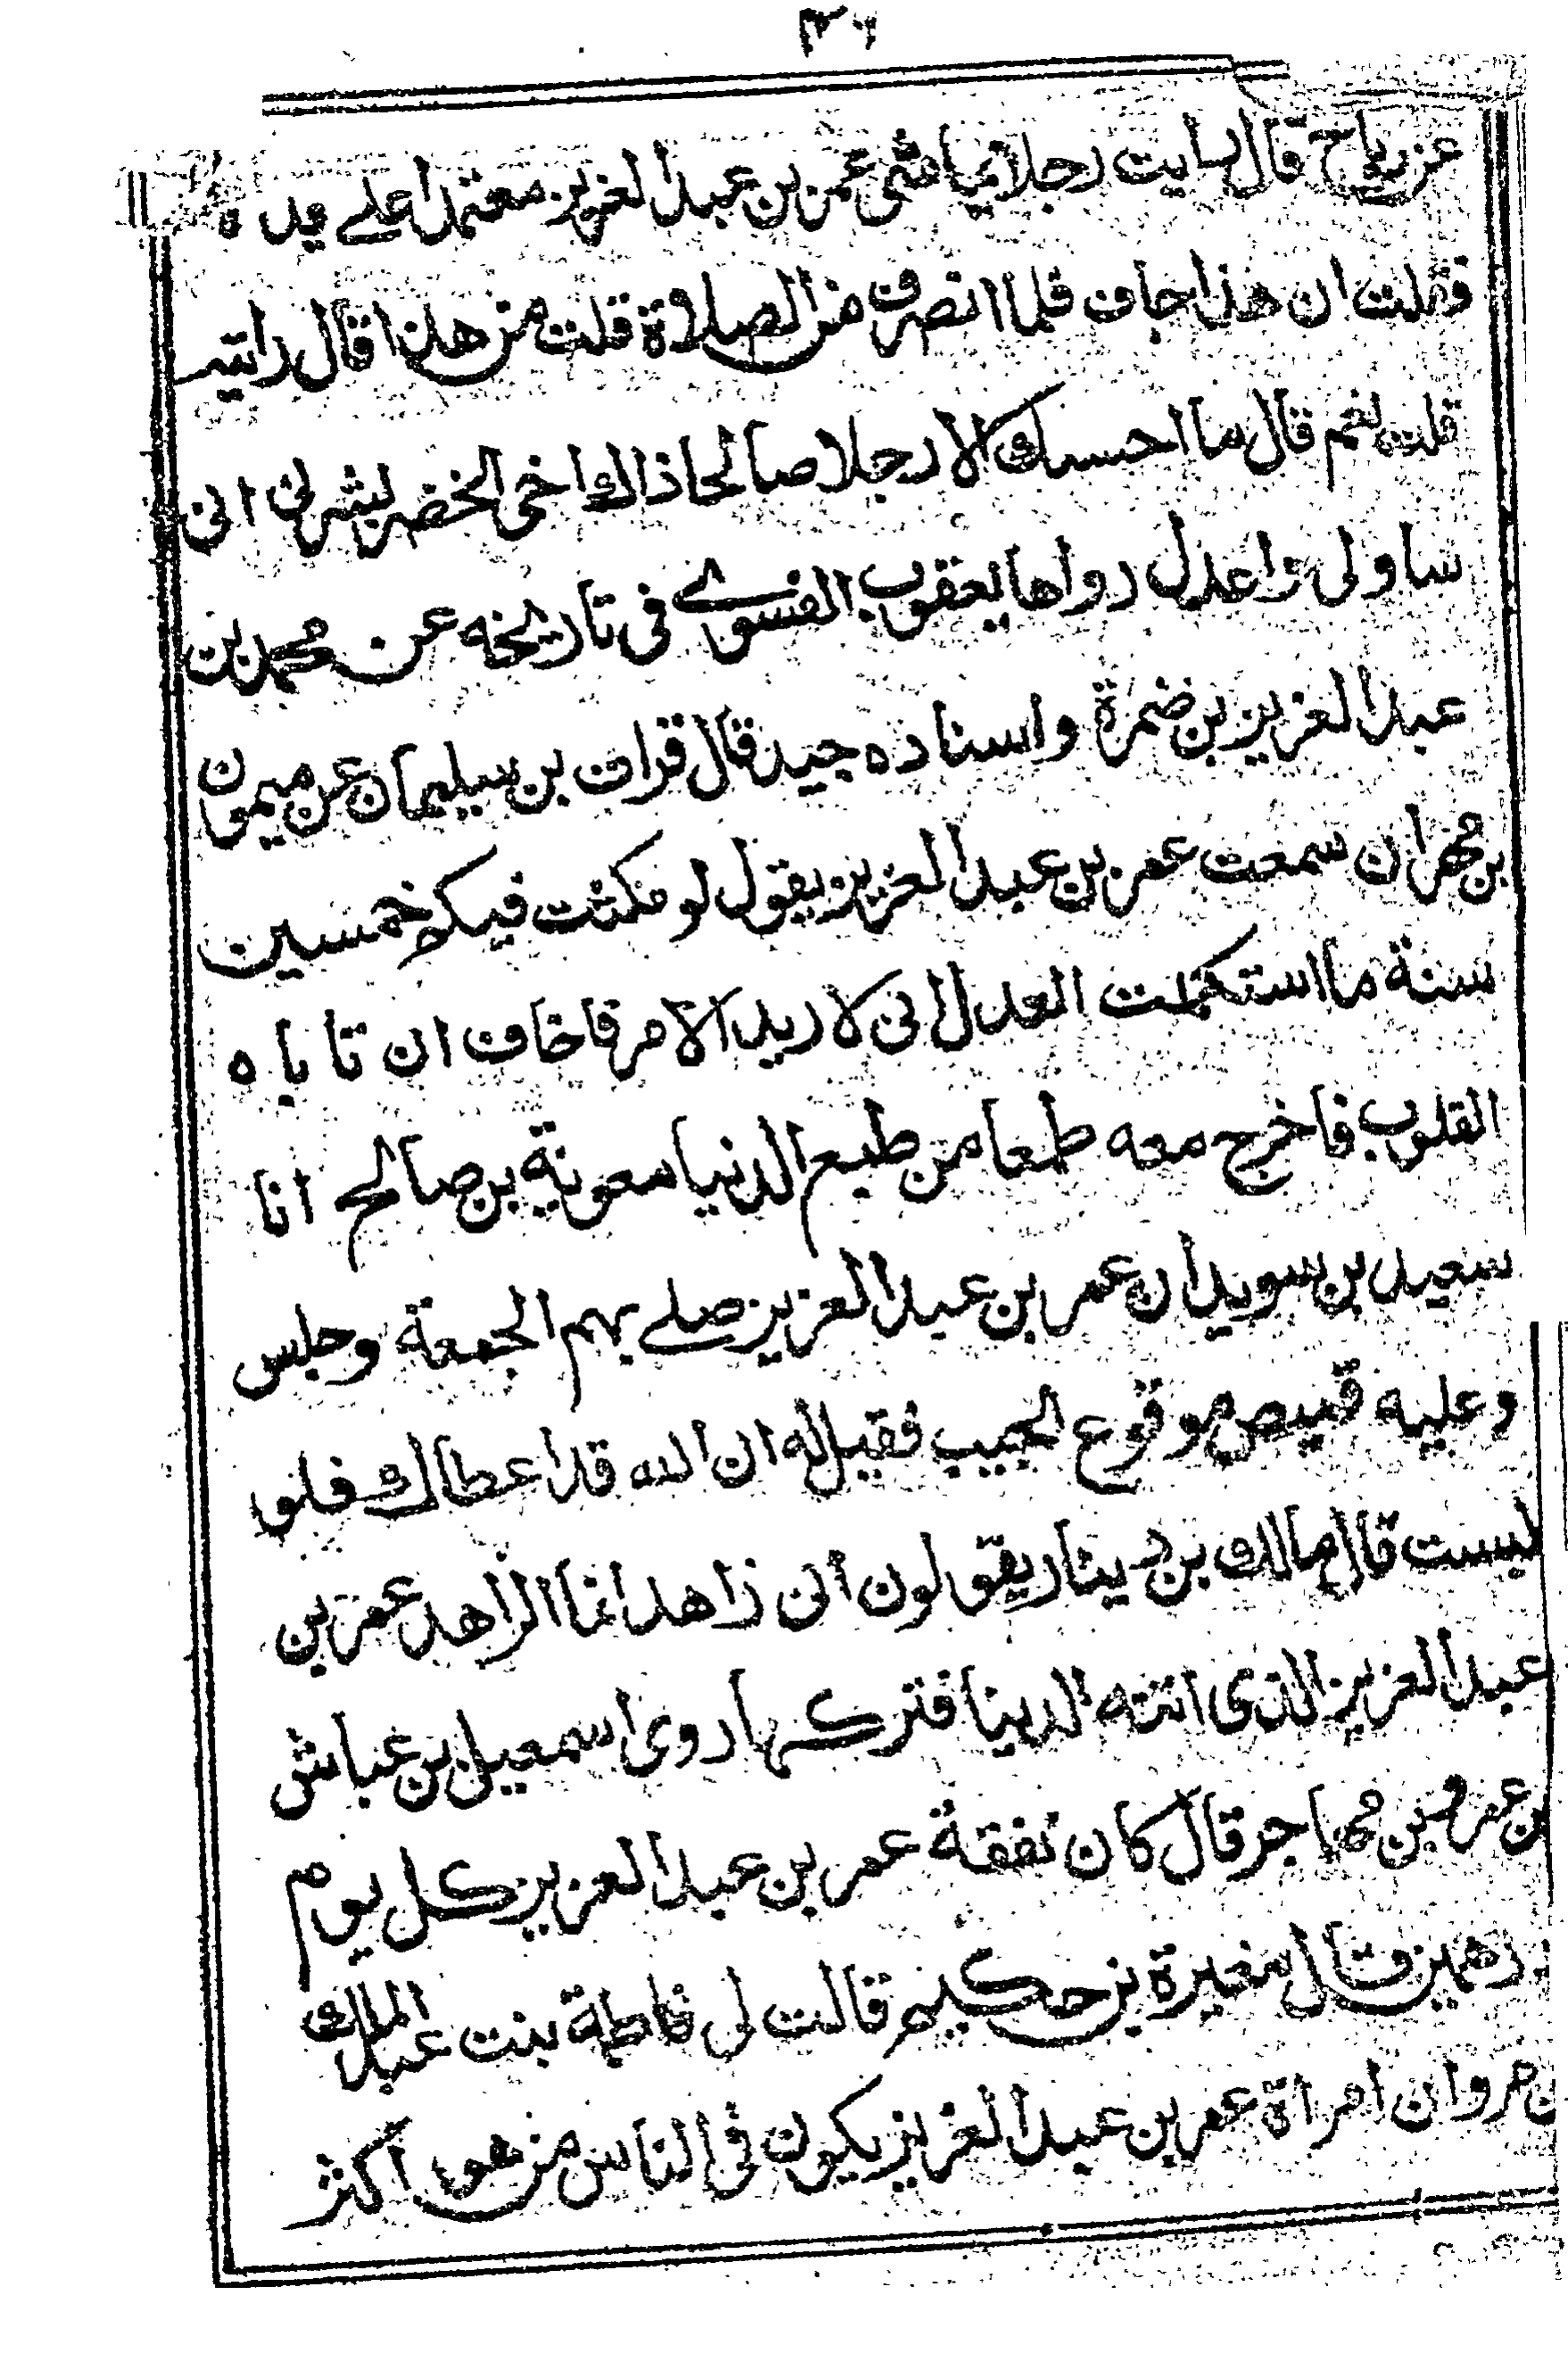 عن رباح قال رايت رجلا يماشى عمر بن عبد العزيز معتمدا على يده
فقلت ان هذا جاف فلما انصرف من الصلاوة قلت من هذا قال رايته
قلت نعم قال ما احسبك الا رجلا صالحا ذاك اخى الخضر بشرنى انى
ساولى واعدل رواها يعقوب الفسوى فى تاريخه عن محمد بن
عبد العزيز بن ضمرة واسناده جيد قال فرات بن سليمان عن ميمون
بن مهران سمعت عمر بن عبد العزيز يقول لو مكثت فيكم خمسين
سنة ما استكملت العدل انى لاريد الامر فاخاف ان تاباه
القلوب فاخرج معه طمعا من طبع الدنيا معوية بن صالح انا
سعيد بن سويد ان عمر بن عبد العزيز صلى بهم الجمعة وجلس
وعليه قميص موقوع الجيب فقيل له ان الله قد اعطاك فلو
لبست قال مالك بن دينار يقولون انى زاهد انما الزاهد عمر بن
عبد العزيز الذى اتته الدينا فتركها روى اسمعيل بن عياش
بن عمرو بن مهاجر قال كان نفقة عمر بن عبد العزيز كل يوم
درهمين قال مغيرة بن حكيم قالت لى فاطمة بنت عبد الملك
بن مروان امراة عمر بن عبد العزيز يكون فى الناس من هو اكثر